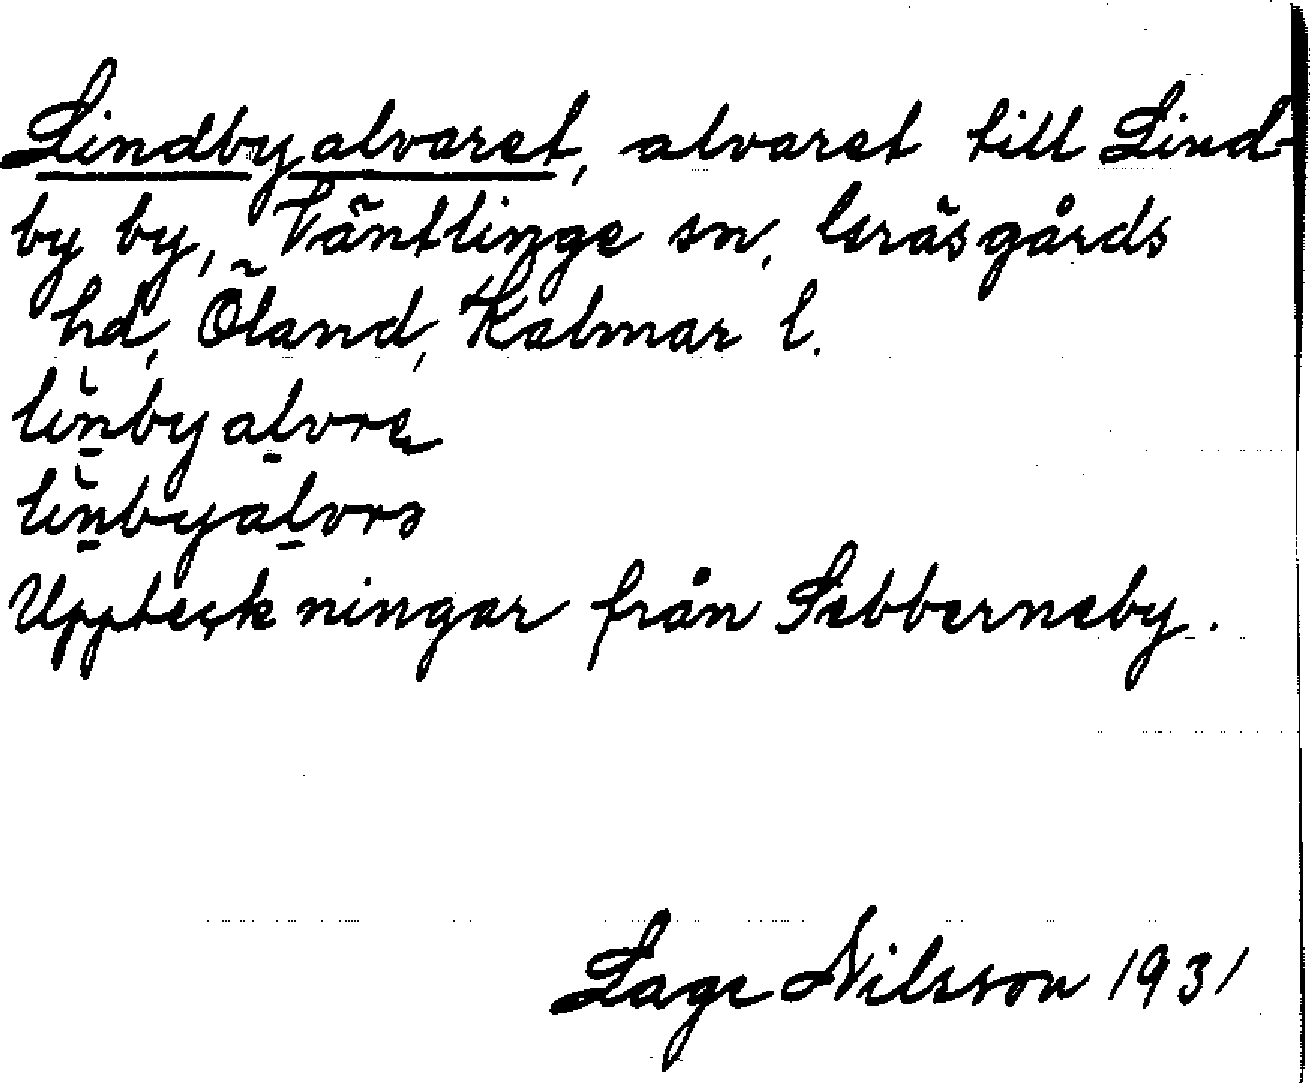 Lindbyalvaret, alvaret till Lind-
by by, Väntlinge sn, Gräsgårds
hd, Öland, Kalmar l.
linbyalvre
linbyalvrə
Uppteckningar från Sebberneby.
Lage Nilsson 1931